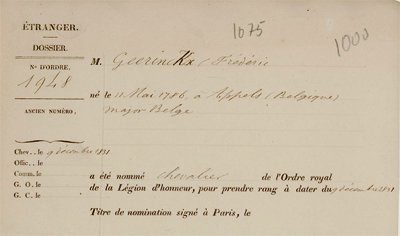 ÉTRANGER.
DOSSIER.
N° D'ORDRE.
1948
ANCIEN NUMÉRO,
1075
1000
M. Geerinckx (Frédéric
né le 11 Mai 1786, à Appels (Belgique)
major Belge
Chev.. le 9 décembre 1831
Offic.. le
Comm.. le
G. O... le
G. C... le
a été nommé chevalier de l'Ordre royal
de la Légion d'honneur, pour prendre rang à dater du 9 décembre 1831
Titre de nomination signé à Paris, le